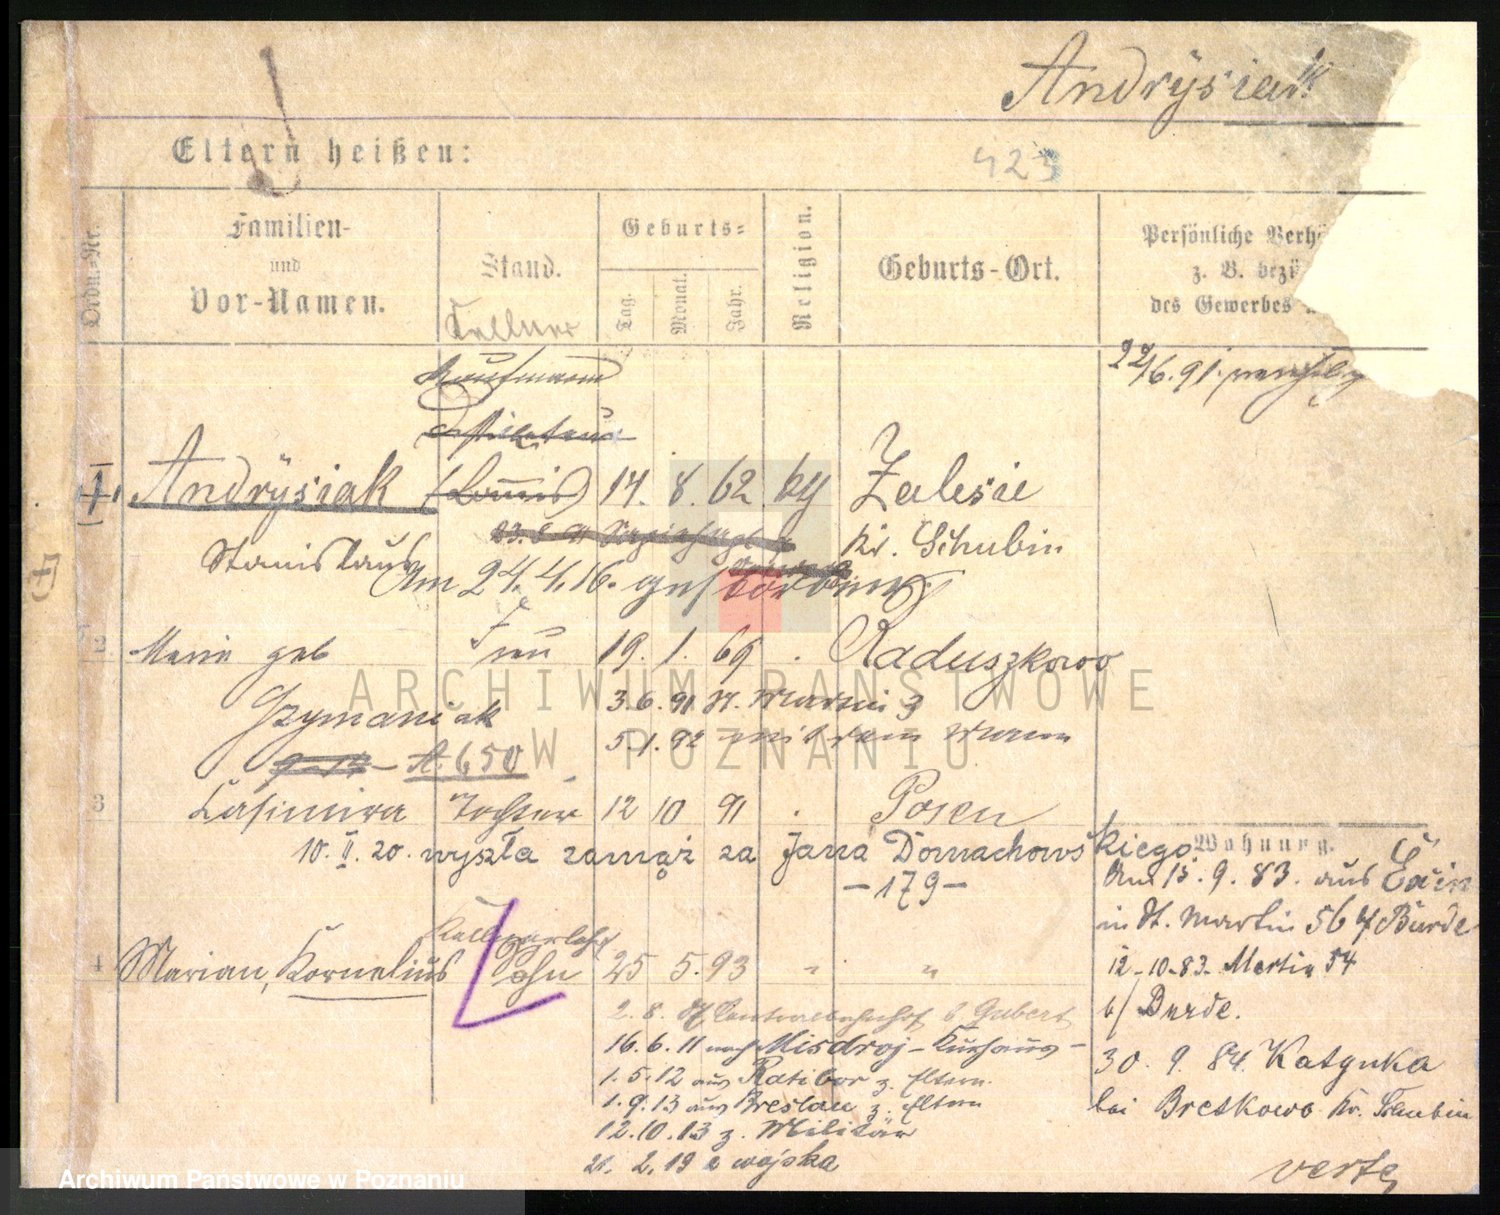 Andrÿsiak
Eltern heißen:
423
Ordn.-Nr.
Familien-
und
Vor-Namen.
Stand.
Geburts-
Tag.
Monat.
Jahr.
Religion.
Geburts-Ort.
Persönliche Verh
z. B. bezü
des Gewerbes
Kellner
Kaufmann
22/6.91.
1. Andrÿsiak (Louis) 14. 8. 62 kg Zalesie
Kr. Schubin
Stanislaus
Am 24.4.16. gestorben.
2 Marie geb Frau 19. 1. 69 . Raduszkowo
Szymaniak
3.6.91 St. Martin 3
5.1.92 mit dem Mann
A. 650
3 Casimira Tochter 12 10 91 . Posen
10. II. 20. wyszła zamąż za Jana Domachowskiego
- 179 -
Wohnung.
Am 15. 9. 83. aus Exin
in St. Martin 56 b/ Burde
12-10-83- Martin 54
b/ Burde.
30. 9. 84. Katynka
bei Bretkowo Kr. Schubin
verte
4 Marian, Kornelius Sohn 25 5. 93 " "
2. 8. 07 Centralbahnhof b. Gubert
16. 6. 11 nach Misdroj - Kurhaus -
1. 5. 12 aus Ratibor z. Eltern.
1. 9. 13 aus Breslau z. Eltern
12. 10. 13 z. Militär
21. 2. 19 z wojska
ARCHIWUM PAŃSTWOWE
W POZNANIU
Archiwum Państwowe w Poznaniu